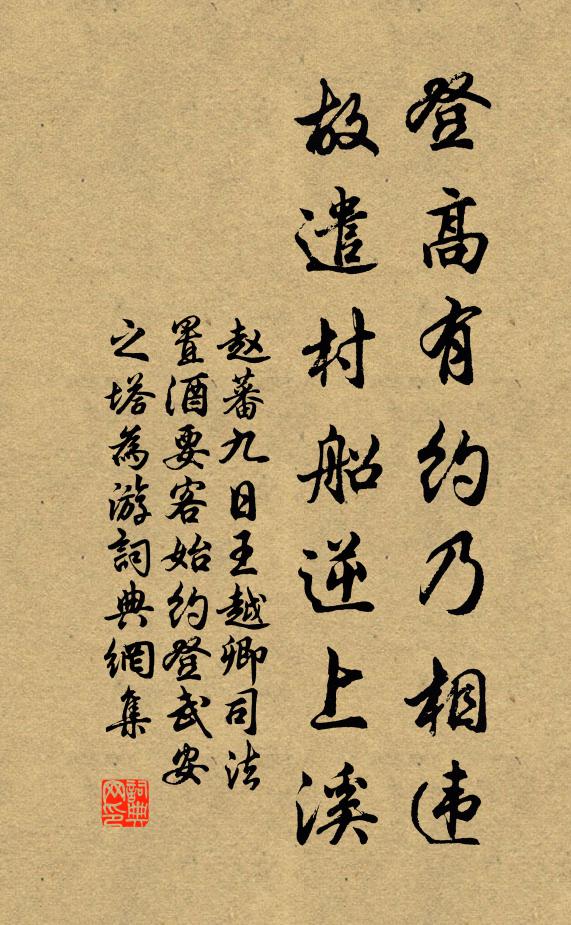 登高有约乃相违
故遣村船逆上溪
赵蕃九日王越卿司法
置酒要客始约登武安
之塔為游詞典網集
詞典
网印